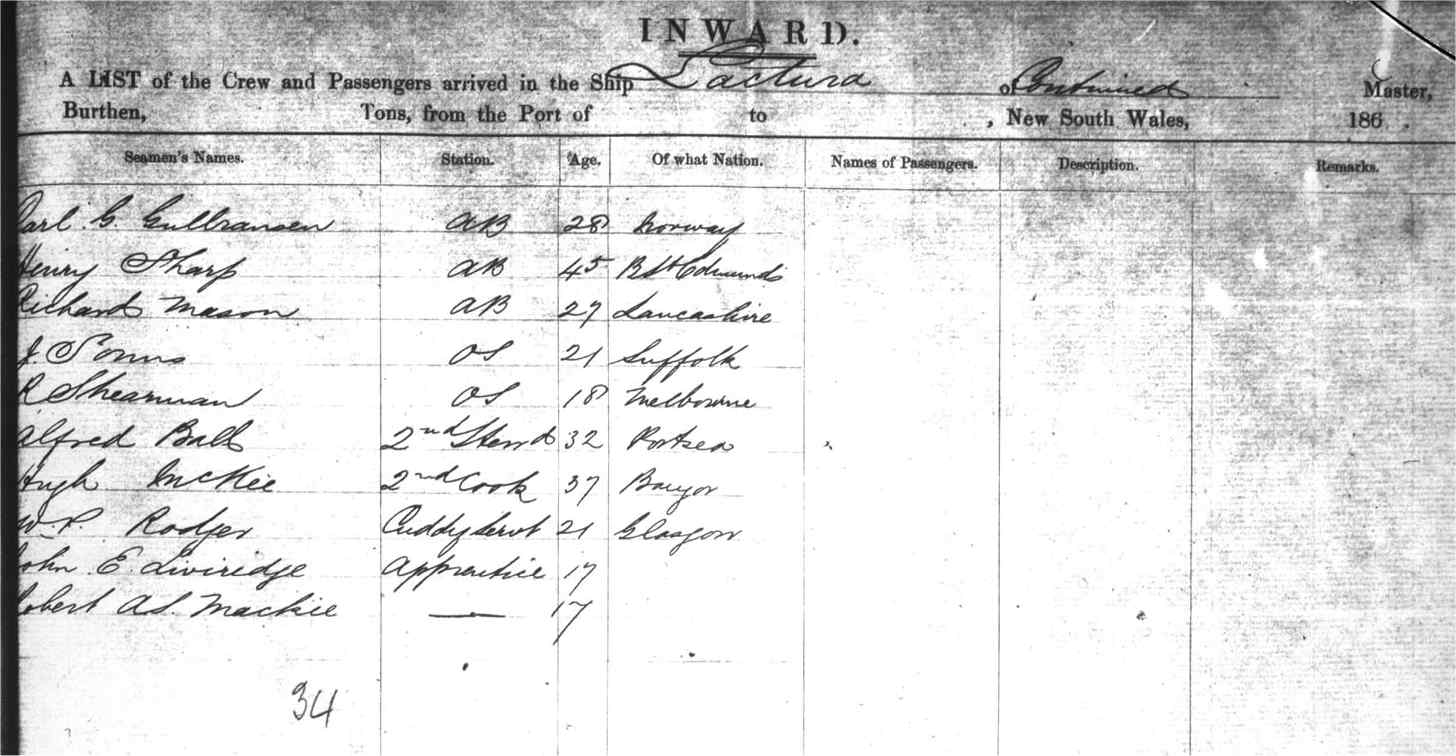 INWARD.
A LIST of the Crew and Passengers arrived in the Ship Lactura of Continued Master,
Burthen, Tons, from the Port of to , New South Wales, 186 .
Seamen's Names. Station. Age. Of what Nation. Names of Passengers. Description. Remarks.
Carl G. Gulbransen AB 28 Norway
Henry Sharp AB 45 B St Edmunds
Richard Mason AB 27 Lancashire
J. OS 21 Suffolk
R Shearman OS 18 Melbourne
Alfred Ball 2nd Stewd 32 Portsea
Hugh McKie 2nd Cook 37 Bangor
W. P. Rodger Cuddy Servt 21 Glasgow
John E. Liviredge Apprentice 17
Robert A.S. Mackie — 17
34